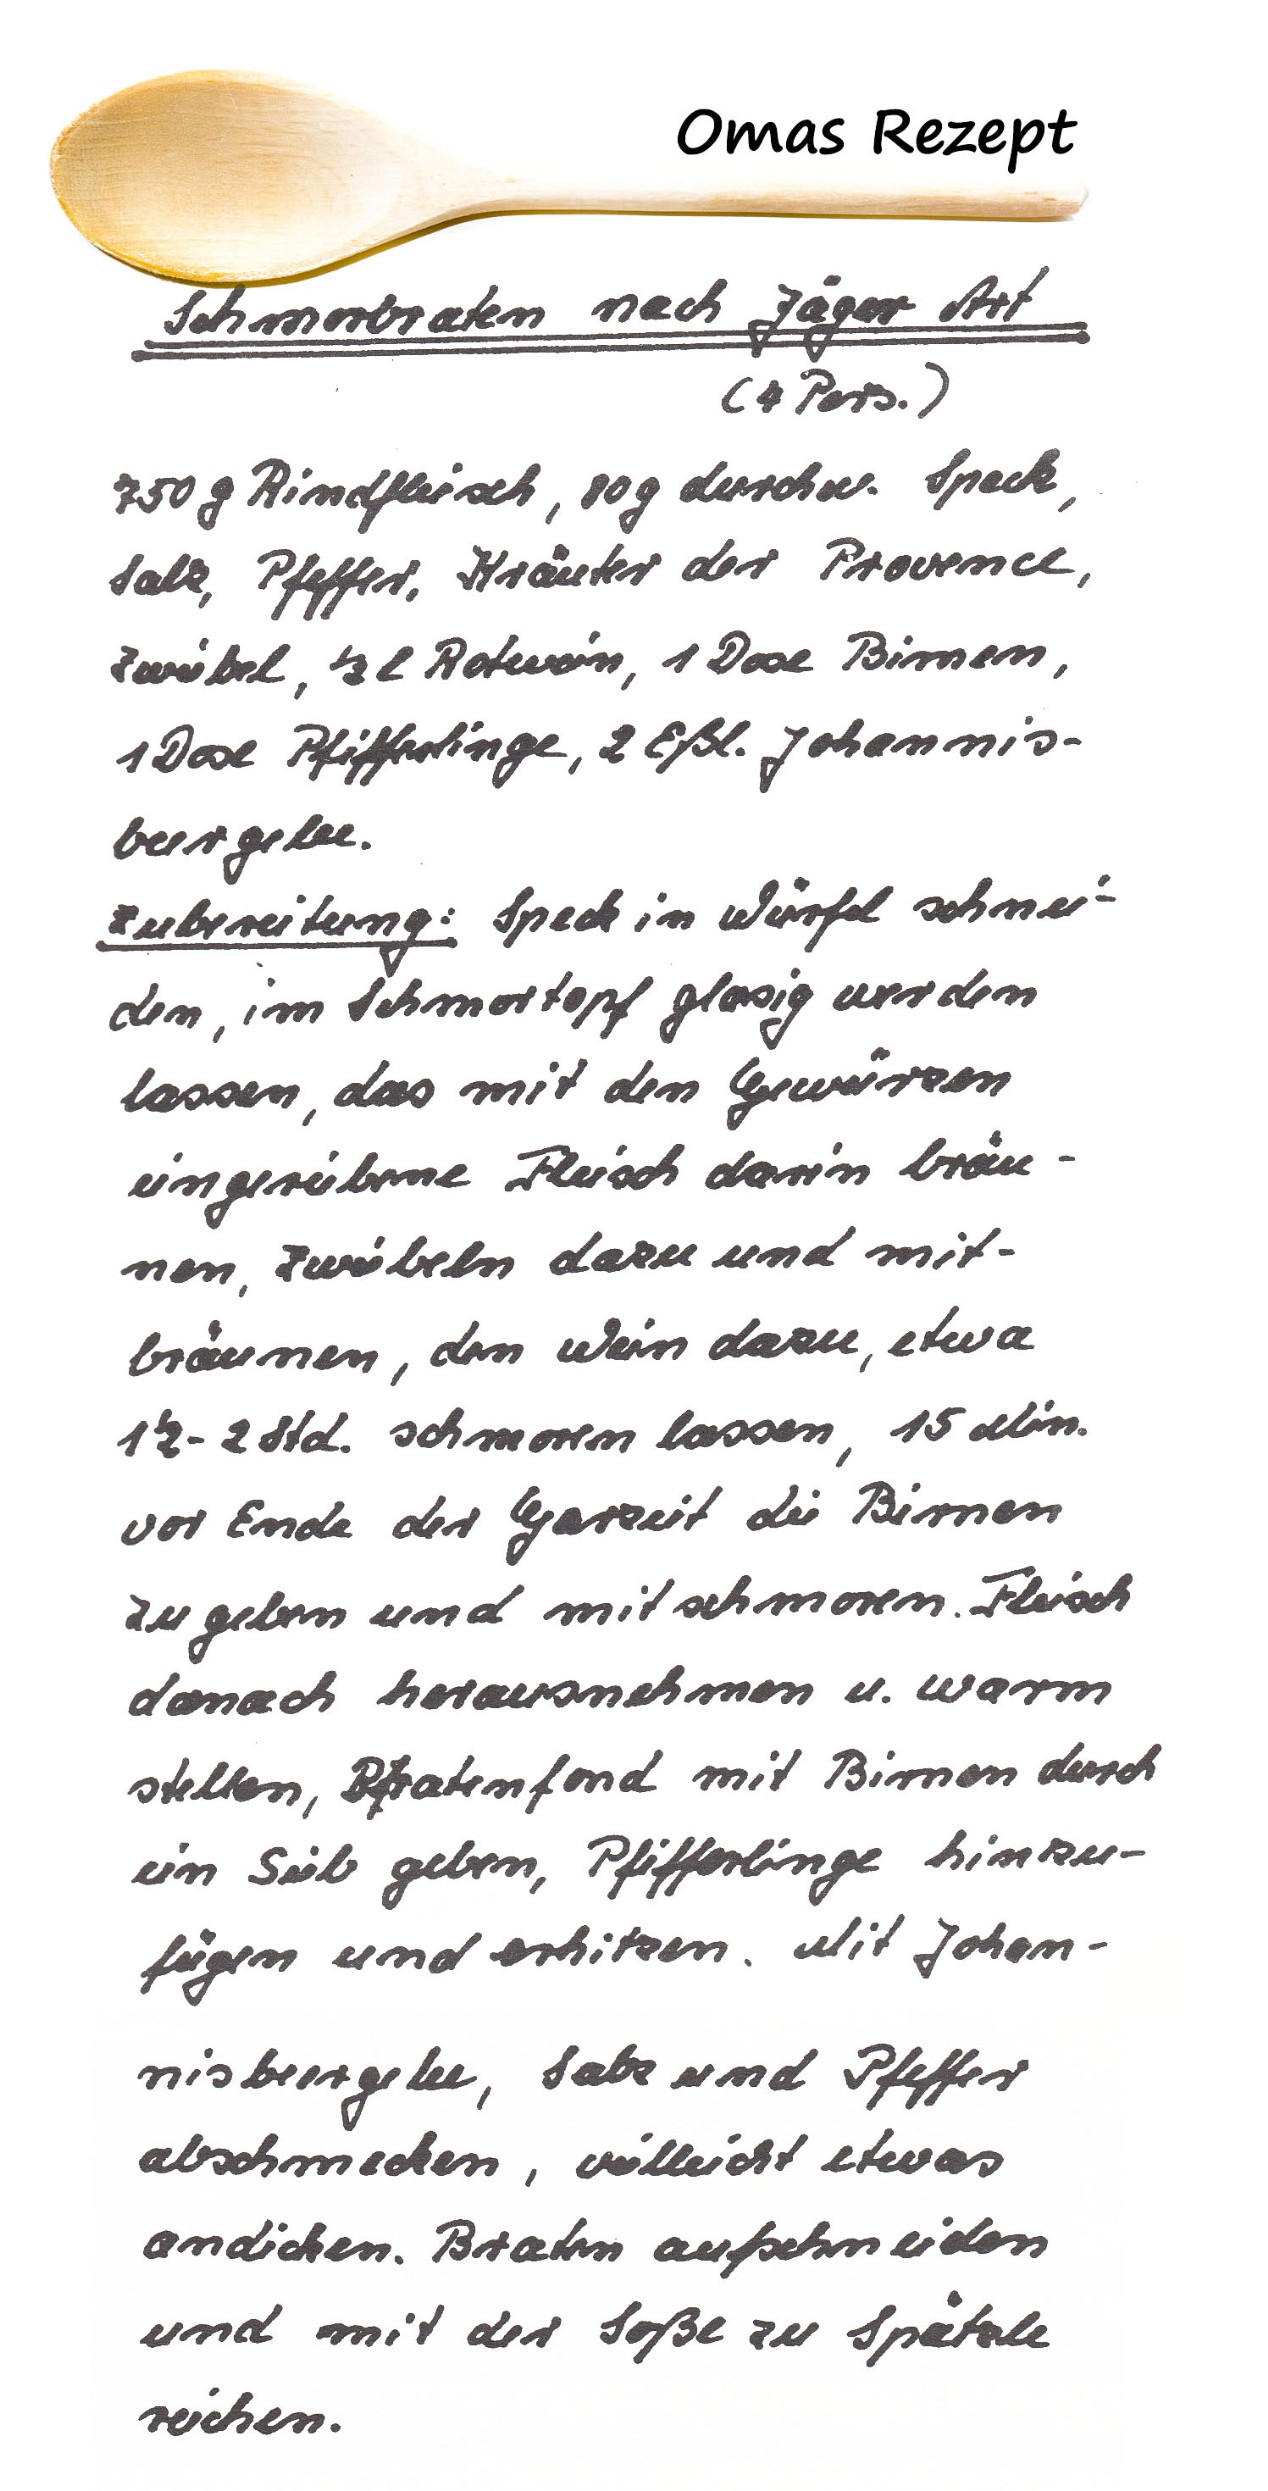 Omas Rezept
Schmorbraten nach Jäger Art
(4 Pers.)
750 g Rindfleisch, 80 g durchw. Speck,
Salz, Pfeffer, Kräuter der Provence,
Zwiebel, 1/2 l Rotwein, 1 Dose Birnen,
1 Dose Pfifferlinge, 2 Eßl. Johannis-
beergelee.
Zubereitung: Speck in Würfel schnei-
den, im Schmortopf glasig werden
lassen, das mit den Gewürzen
eingeriebene Fleisch darin bräu-
nen, Zwiebeln dazu und mit-
bräunen, den Wein dazu, etwa
1 1/2 - 2 Std. schmoren lassen, 15 Min.
vor Ende der Garzeit die Birnen
zugeben und mitschmoren. Fleisch
danach herausnehmen u. warm
stellen, Bratenfond mit Birnen durch
ein Sieb geben, Pfifferlinge hinzu-
fügen und erhitzen. Mit Johan-
nisbeergelee, Salz und Pfeffer
abschmecken, vielleicht etwas
andicken. Braten aufschneiden
und mit der Soße zu Spätzle
reichen.